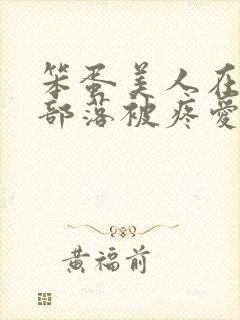 笨蛋美人在
部落被疼爱
黄福前